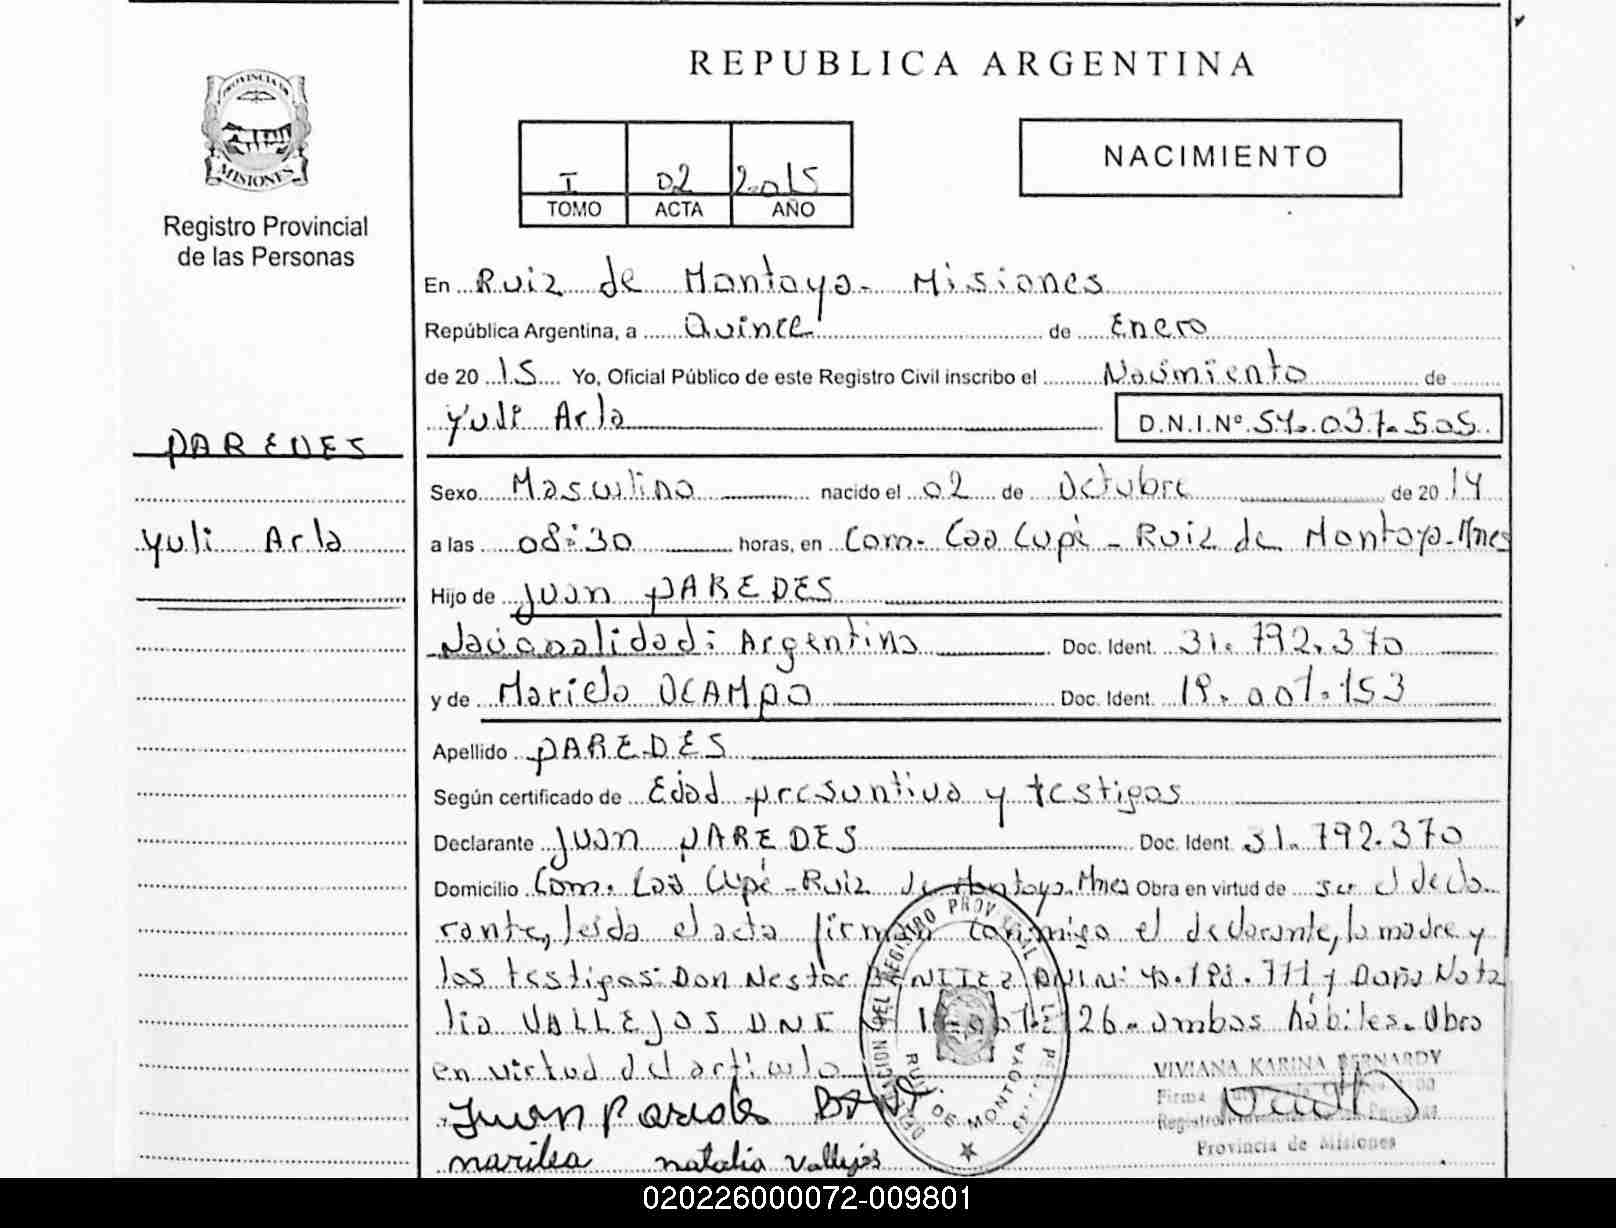 PROVINCIA DE
MISIONES
Registro Provincial
de las Personas
PAREDES
Yuli Arla
REPUBLICA ARGENTINA
I 02 2015
TOMO ACTA AÑO
NACIMIENTO
En Ruiz de Montoya - Misiones
República Argentina, a Quince de Enero
de 20 15 Yo, Oficial Público de este Registro Civil inscribo el Nacimiento de
Yuli Arla D.N.I.Nº 54.037.505
Sexo Masculino nacido el 02 de Octubre de 20 14
a las 08:30 horas, en Com. Caa Cupé - Ruiz de Montoya - Mnes
Hijo de Juan PAREDES
Nacionalidad: Argentina Doc. Ident. 31.792.370
y de Mariela OCAMPO Doc. Ident.
Apellido PAREDES
Según certificado de Edad presuntiva y testigos
Declarante Juan PAREDES Doc. Ident. 31.792.370
Domicilio Com. Caa Cupé - Ruiz de Montoya. Mnes Obra en virtud de ser el decla
rante, leída el acta firman conmigo el declarante, la madre y
los testigos: Don Nestor BENITEZ y Doña Nata
lia VALLEJOS DNI 26 - ambos hábiles. Obra
en virtud del artículo
Juan Paredes
natalia Vallejos
DELEGACION DEL REGISTRO PROVINCIAL DE LAS PERSONAS
RUIZ DE MONTOYA
VIVIANA KARINA BERNARDY
Provincia de Misiones
020226000072-009801